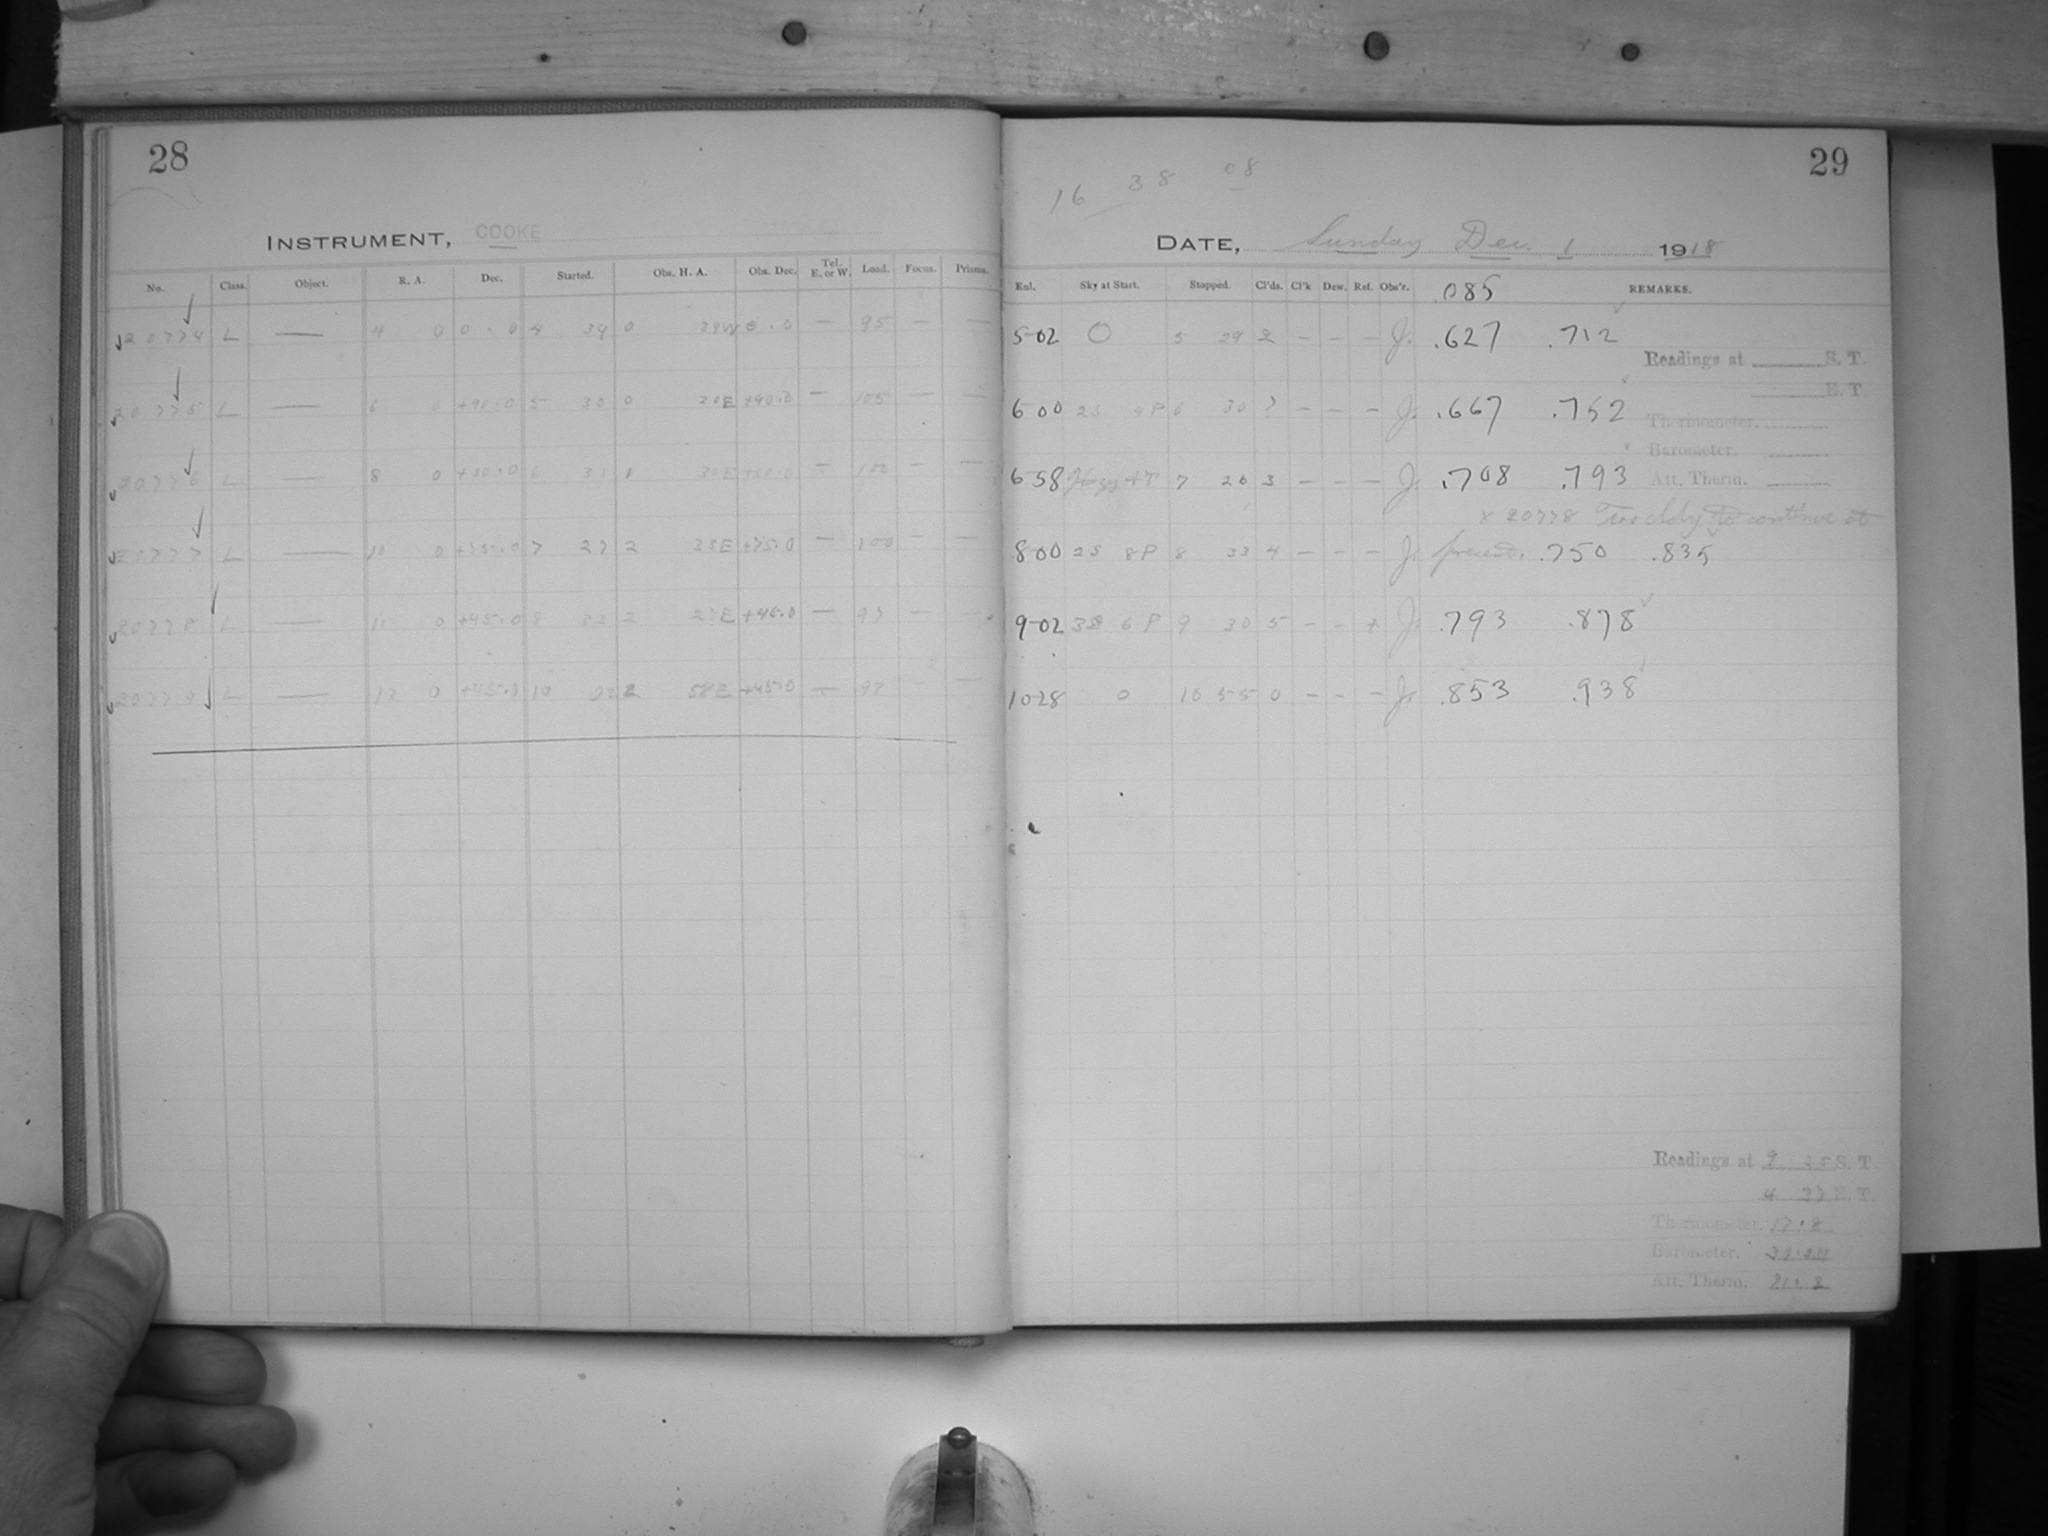 28
INSTRUMENT, COOKE
No. Class. Object. R. A. Dec. Started. Obs. H. A. Obs. Dec. Tel. E. or W. Load. Focus. Prisms.
20774 L — 4 0 0.0 4 34 0 39W 0.0 — 95 — —
20775 L — 6 0 +90.0 5 30 0 20E +90.0 — 105 — —
20776 L — 8 0 +30.0 6 31 30E +30.0 — 100 — —
20777 L — 10 0 +75.0 7 27 2 35E +75.0 — 100 — —
20778 L — 11 0 +45.0 8 33 2 27E +45.0 — 97 —
20779 L — 0 +45.0 10 2 58E +45.0 — 97 — —
29
16 38 08
DATE, Sunday Dec. 1 1918
Enl. Sky at Start. Stopped. Cl'ds. Cl'k Dew. Ref. Obs'r. .085 REMARKS.
5-02 0 5 29 2 — — — J. .627 .712
Readings at S. T.
E. T.
6 00 2S 4P 6 30 ? — — — J. .667 .752
Thermometer.
Barometer.
6 58 Hazy 4P 7 26 3 — — — J. .708 .793
Att. Therm.
x 20778 Too cldy to continue at
8-00 2S 8P 8 33 4 — — — J. present. .750 .835
9-02 3S 6P 9 30 5 — — + J. .793 .878
10 28 0 10 55 0 — — — J. .853 .938
Readings at 9 35 S. T.
4 37 E. T.
Thermometer. 17.8
Barometer.
Att. Therm.